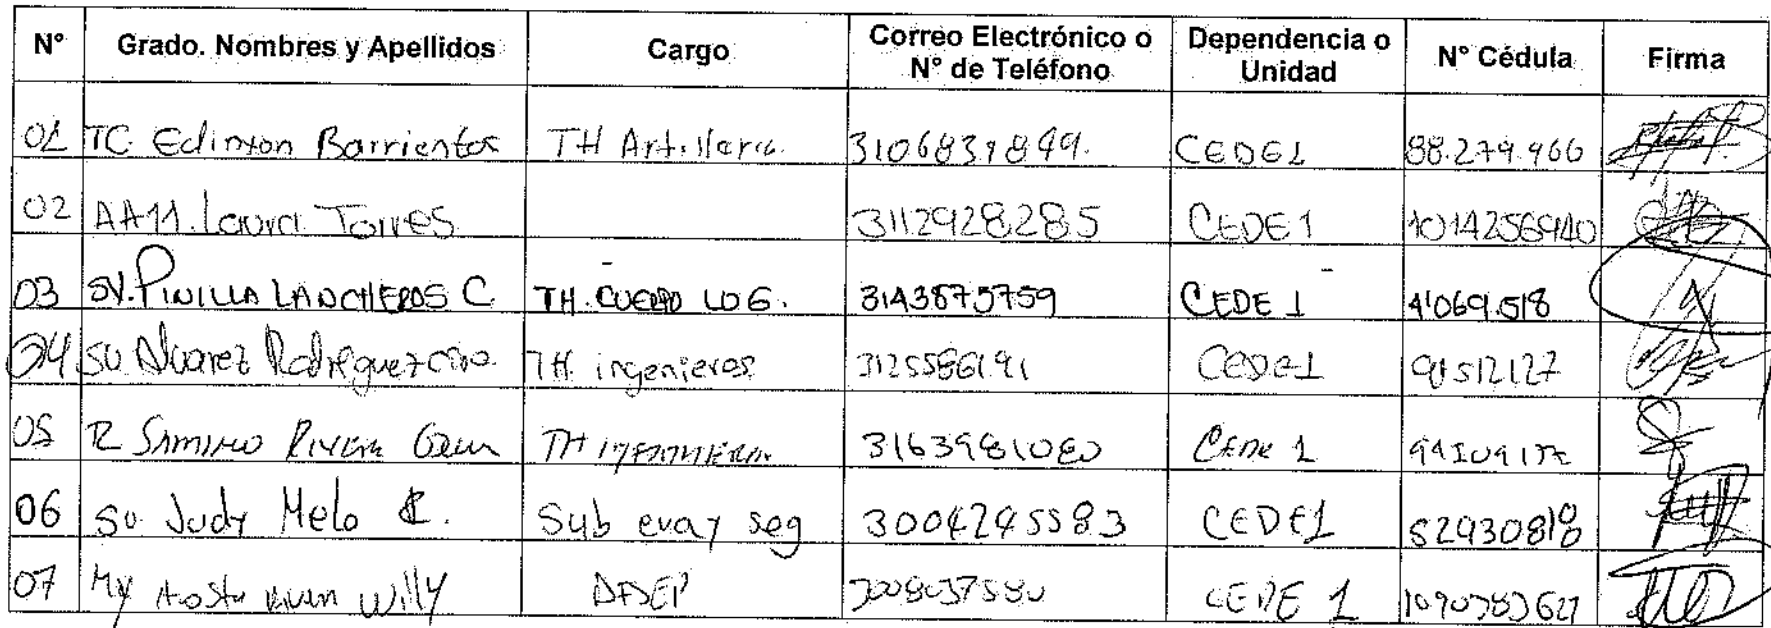 N° Grado. Nombres y Apellidos Cargo Correo Electrónico o N° de Teléfono Dependencia o Unidad N° Cédula Firma
01 TC Edinson Barrientos TH Artilleria. 3106839849. CEDE1 88.279.966
02 AA11. Laura Torres 3112928285 CEDE1 1014256940
03 SV. PINILLA LANCHEROS C TH. CUERPO LOG. 3143875759 CEDE 1 4'069.518
04 SV Alvarez Rodriguez TH ingenieros 3125586191 CEDE1 91512127
05 Rivera TH 3163981080 CEDE 1
06 SV. Judy Melo C. Sub eva y seg 3004245583 CEDE1 52930818
07 My Willy 3008037580 CEDE 1 1090383627